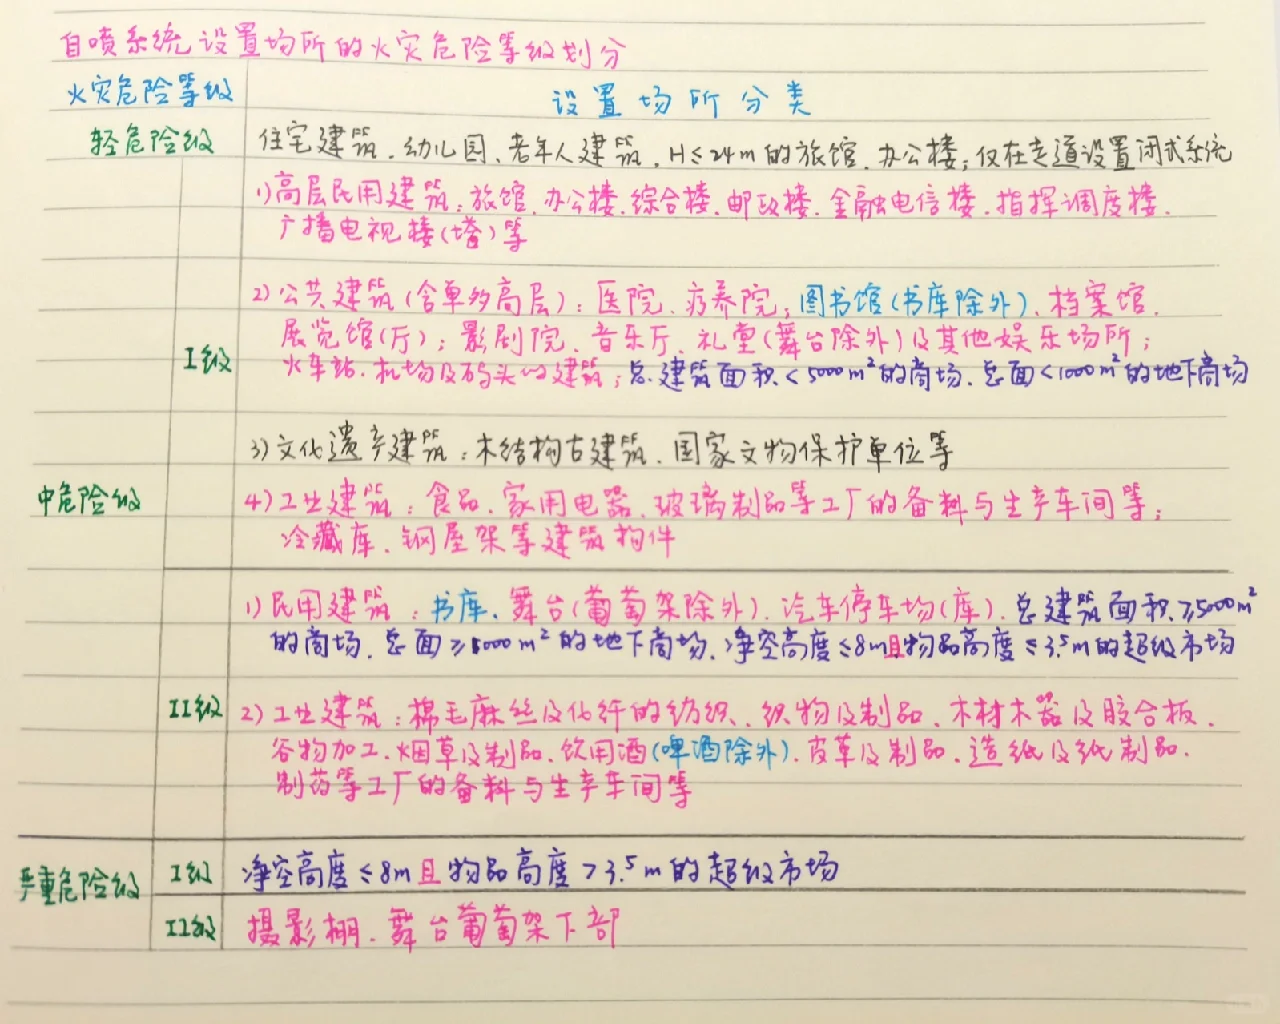 自喷系统设置场所的火灾危险等级划分
火灾危险等级 设置场所分类
轻危险级 住宅建筑、幼儿园、老年人建筑、H≤24m的旅馆、办公楼；仅在走道设置闭式系统
1)高层民用建筑：旅馆、办公楼、综合楼、邮政楼、金融电信楼、指挥调度楼、
广播电视楼(塔)等
2)公共建筑(含单多高层)：医院、疗养院；图书馆(书库除外)、档案馆、
展览馆(厅)；影剧院、音乐厅、礼堂(舞台除外)及其他娱乐场所；
I级 火车站、机场及码头的建筑；总建筑面积<5000m²的商场、总面<1000m²的地下商场
3)文化遗产建筑：木结构古建筑、国家文物保护单位等
中危险级 4)工业建筑：食品、家用电器、玻璃制品等工厂的备料与生产车间等；
冷藏库、钢屋架等建筑构件
1)民用建筑：书库、舞台(葡萄架除外)、汽车停车场(库)、总建筑面积≥5000m²
的商场、总面≥1000m²的地下商场、净空高度≤8m且物品高度≤3.5m的超级市场
II级 2)工业建筑：棉毛麻丝及化纤的纺织、织物及制品、木材木器及胶合板、
谷物加工、烟草及制品、饮用酒(啤酒除外)、皮革及制品、造纸及纸制品、
制药等工厂的备料与生产车间等
严重危险级 I级 净空高度≤8m且物品高度>3.5m的超级市场
II级 摄影棚、舞台葡萄架下部